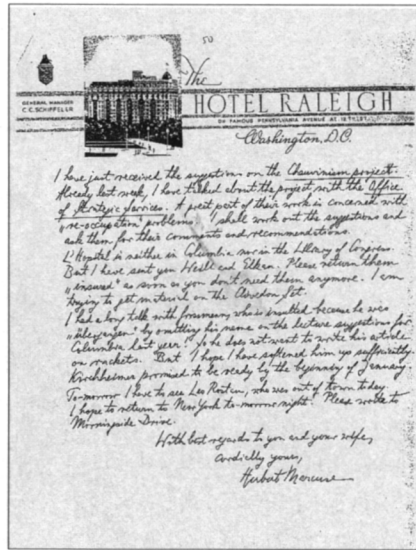 50
The
GENERAL MANAGER
C.C. SCHIFFELER
HOTEL RALEIGH
ON FAMOUS PENNSYLVANIA AVENUE AT 12TH ST.
Washington, D.C.
I have just received the suggestion on the Chauvinism project.
Already last week, I have talked about the project with the Office
of Strategic Services. A great part of their work is concerned with
"re-occupation" problems. I shall work out the suggestions and
ask them for their comments and recommendations.
L'Hopital is neither in Columbia nor in the Library of Congress.
But I have sent you Hesle and Elken. Please return them
"insured" as soon as you don't need them anymore. I am
trying to get material on the
I had a long talk with who is insulted because he was
"übergangen" by omitting his name on the lecture suggestions for
Columbia last year! So he does not want to write his article
on rackets. But I hope I have softened him up sufficiently.
Kirchheimer promised to be ready by the beginning of January.
To-morrow I have to see Les who was out of town today.
I hope to return to New York to-morrow night. Please write to
Morningside Drive.
With best regards to you and your wife,
cordially yours,
Herbert Marcuse